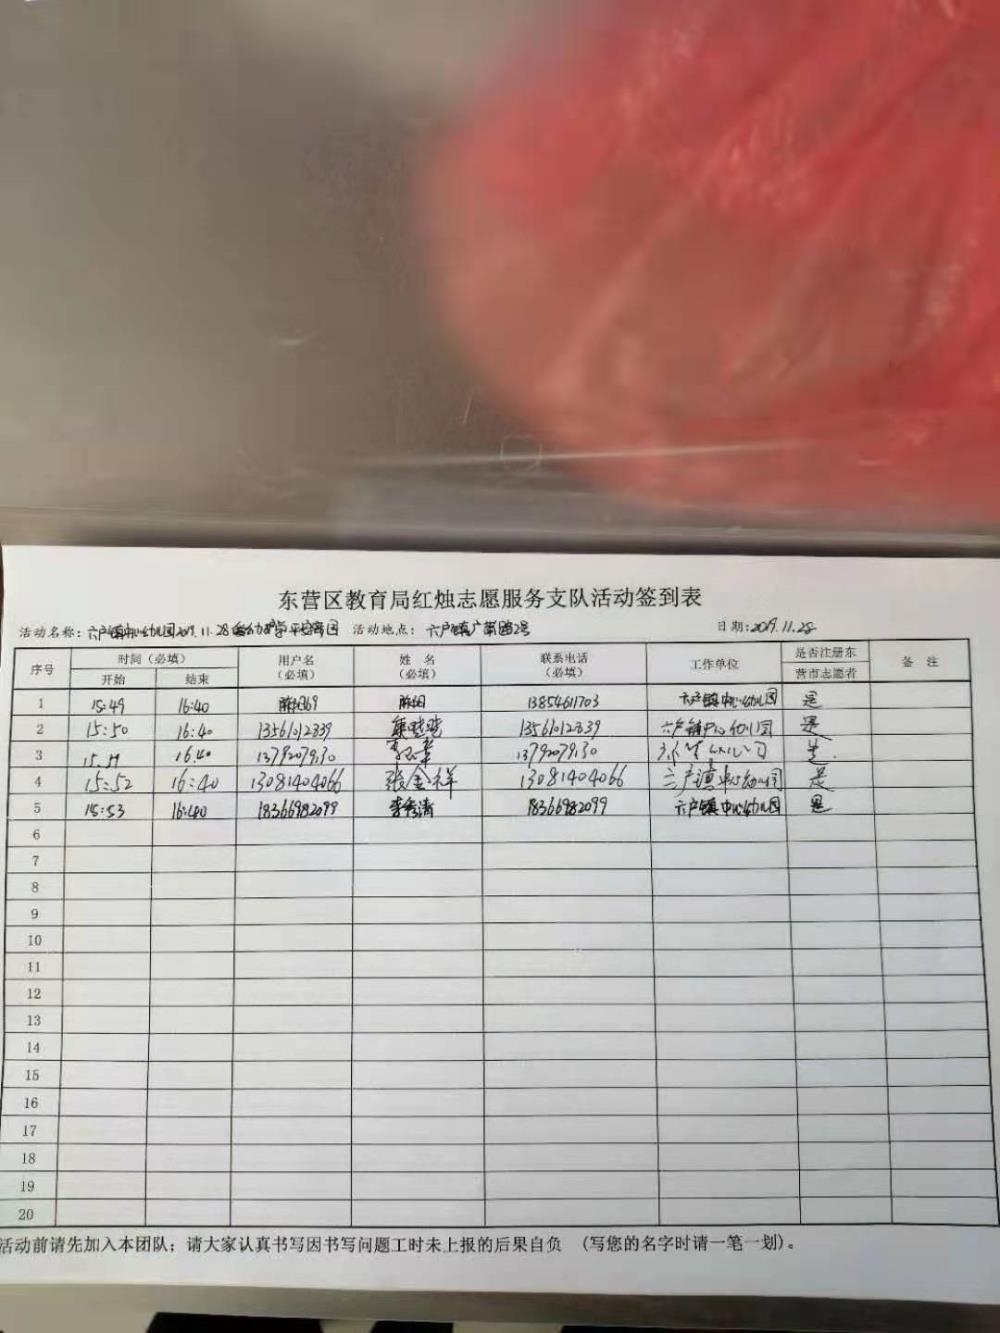 东营区教育局红烛志愿服务支队活动签到表
活动名称：六户镇中心幼儿园2019.11.28 活动地点：六户镇广 路2号 日期：2019.11.28
序号 时间（必填） 用户名（必填） 姓 名（必填） 联系电话（必填） 工作单位 是否注册东营市志愿者 备 注
开始 结束
1 15:49 16:40 13854661703 六户镇中心幼儿园 是
2 15:50 16:40 13561012339 13561012339 六户镇中心幼儿园 是
3 16.40 是
4 15:52 16:40 13081404066 张金祥 13081404066 六户镇中心幼儿园 是
5 15:53 16:40 18366982099 李秀清 18366982099 六户镇中心幼儿园 是
6
7
8
9
10
11
12
13
14
15
16
17
18
19
20
活动前请先加入本团队；请大家认真书写因书写问题工时未上报的后果自负 （写您的名字时请一笔一划）。